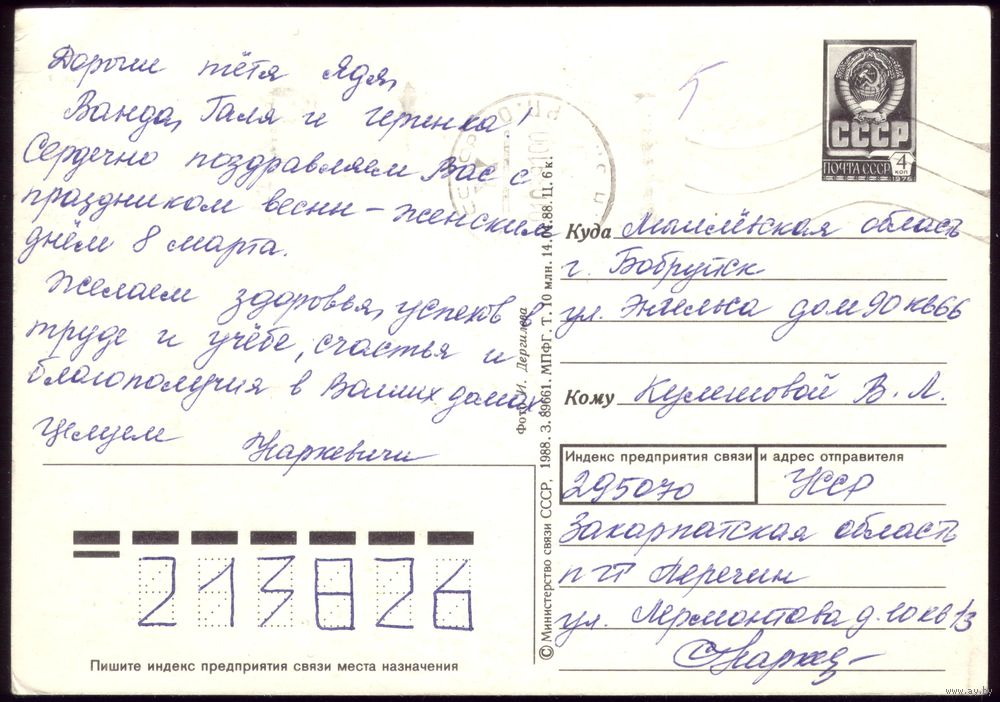 Дорогие тётя Ядя,
Ванда, Галя и Геринка!
Сердечно поздравляем Вас с
праздником весны – женским
днём 8 марта.
Желаем здоровья, успехов в
труде и учёбе, счастья и
благополучия в Ваших домах
Целуем Наркевичи
СССР
ПОЧТА СССР 4 КОП
1976
Куда Могилёвская область
г. Бобруйск
ул. Энгельса дом 90 кв 66
Кому Кулешовой В. Л.
Индекс предприятия связи и адрес отправителя
295070 УССР
Закарпатская область
пгт Перечин
ул. Лермонтова д. 10 кв 13
213826
Пишите индекс предприятия связи места назначения
© Министерство связи СССР, 1988. З. 89661. МПФГ. Т. 10 млн. 14.04.88. Ц. 6 к.
Фото И. Дергилёва
www.ay.by